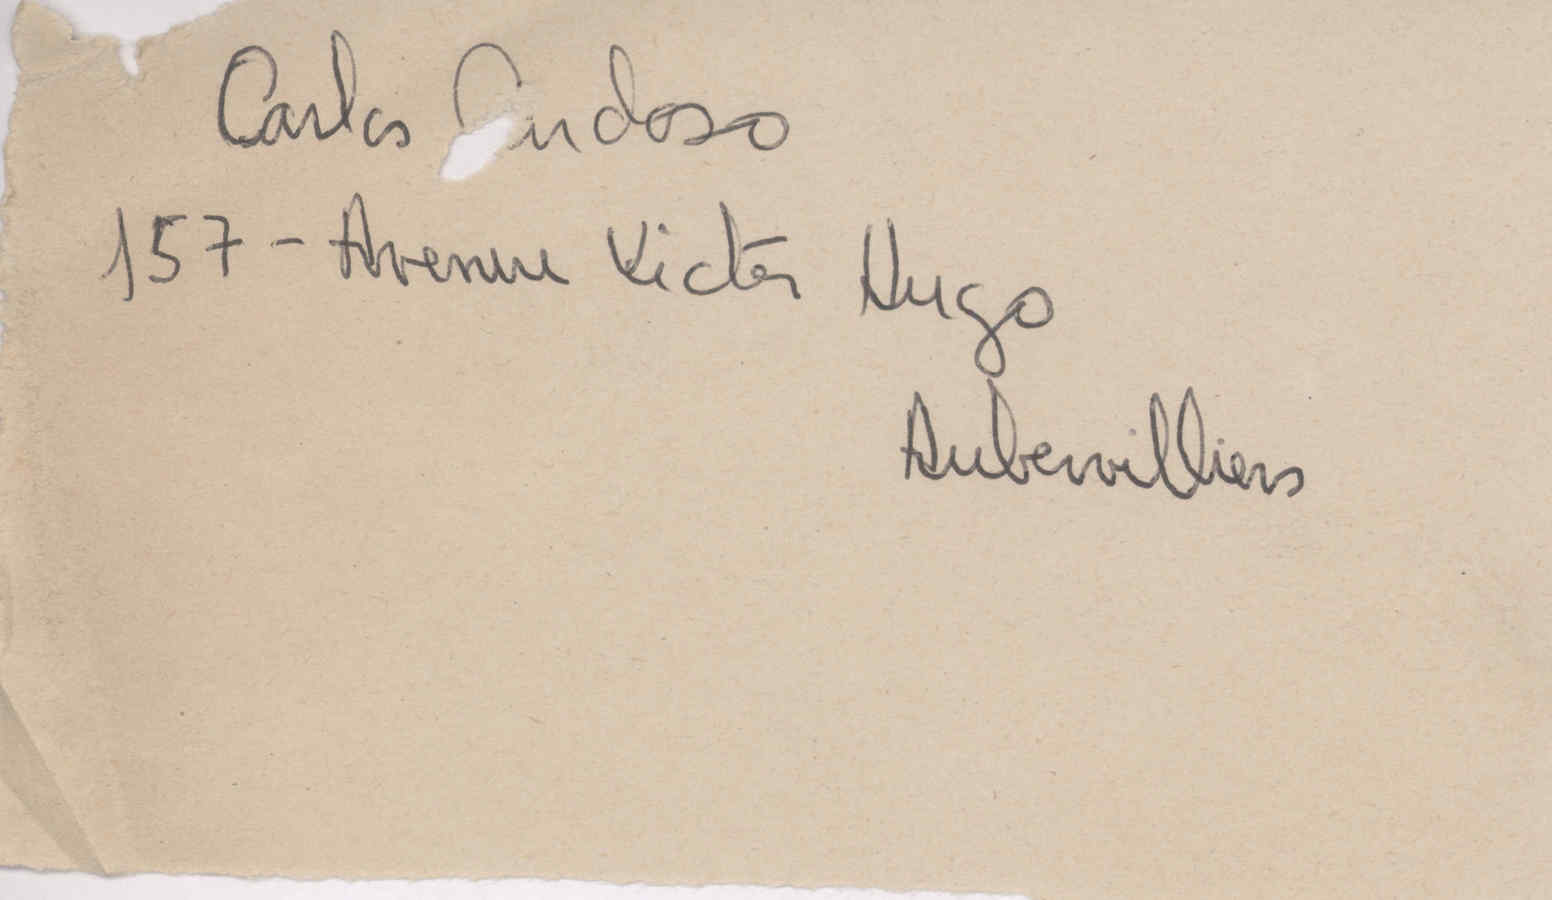 Carlos Cardoso
157 - Avenue Victor Hugo
Aubervilliers